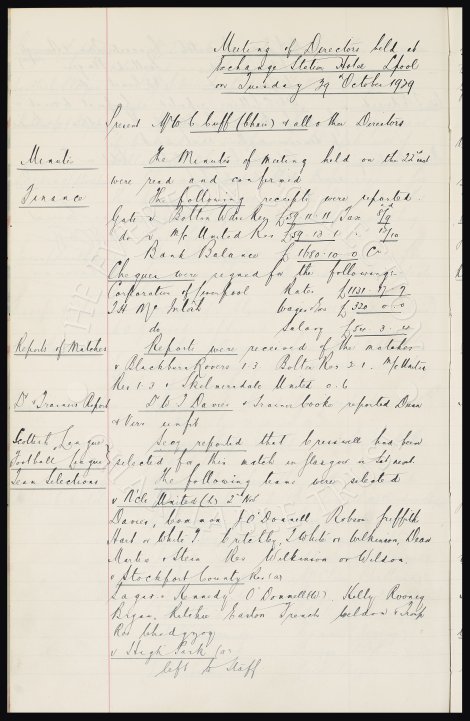 Meeting of Directors held at
Exchange Station Hotel L'pool
on Tuesday 29th October 1929
Present Mr W C Cuff (Chair) & all other Directors
Minutes
The Minutes of meeting held on the 22nd inst
were read and confirmed
Finance
The following receipts were reported
Gate v Bolton Wdrs Res £59 11 11 Tax
do v M/c United Res £59 13 1
Bank Balance £1680.10.0 Cr
Cheques were signed for the following:
Corporation of Liverpool Rates £1131. 9. 9
T.H. McIntosh Wages &c £320 0.0
do Salary
Reports of Matches
Reports were received of the matches
v Blackburn Rovers 1.3 Bolton Res 2.1. M/c United
Res 1.3 & Skelmersdale United 0.6
Dr & Trainers Report
Dr C J Davies & Trainer Cooke reported Dean
& Virr unfit
Scottish League
Football League
Secy reported that Cresswell had been
selected for this match in Glasgow on Sat next
Team Selections
The following teams were selected
v N'cle United (h) 2nd Nov
Davies, Common, J O'Donnell Robson Griffith
Hart or White T Critchley, T White or Wilkinson, Dean
Martin & Stein Res Wilkinson or Weldon.
v Stockport County Res (a)
Sagar. Kennedy O'Donnell (W). Kelly Rooney
Bryan, Ritchie Easton French Weldon & Troup
Res Chedgzoy
v High Park (a)
left to staff